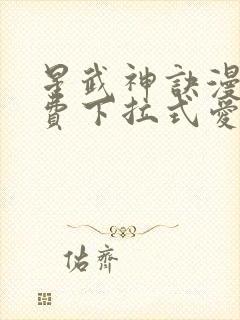 星武神訣漫
費下拉式愛
佑齊